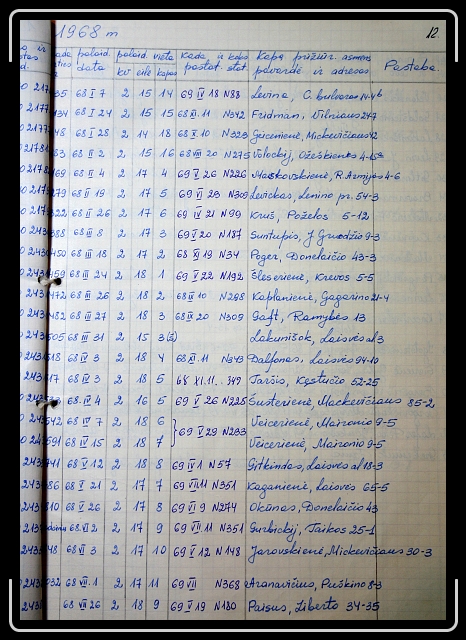 1968 m 12.
palaid. data palaid. vieta kv eilė kapas Kada ir kokos pastat. stat. Kapą prižiūr. asmens pavardė ir adresas Pastaba.
35 68 I 7 2 15 14 69 IV 18 N88 Levina, C. bulvaras 14-46
134 68 I 24 2 15 15 68 XI.11 N342 Fridman, Vilniaus 24-7
48 68 I 28 2 14 18 68 X.10 N323 Mickevičiaus
83 68 II 2 2 15 16 68 VIII 20 N275 Volockij, Ožeškienės 4-15a
169 68 II 4 2 17 4 69 V 26 N226 Maskovskienė, R. Armijos 4-6
279 68 II 19 2 17 5 69 VI 23 N309 Levickas, Lenino pr. 54-3
322 68 II 26 2 17 6 69 IV 21 N99 Kruš, Poželos 5-12
388 68 III 8 2 17 3 69 V 20 N187 Suntupis, J. Gruodžio 9-3
450 68 III 18 2 17 2 68 XI 19 N34 Poger, Donelaičio 43-3
459 68 III 24 2 18 1 69 V 22 N192 Šleserienė, Krėvos 5-5
472 68 III 26 2 18 2 68 IX 10 N298 Kaplanienė, Gagarino 21-4
482 68 III 27 2 18 3 68 IX 20 N309 Gaft, Ramybės 13
505 68 III 31 2 15 3(a) Lakunišok, Laisvės al 3
518 68 IV 3 2 18 4 68 XI.11 N343 Dalfonas, Laisvės 94-10
17 68 IV 3 2 18 5 68 XI.11. .349 Taršis, Kęstučio 52-25
68.IV 4 2 16 5 69 V 26 N225 Šusterienė, Mackevičiaus 85-2
542 68 IV 7 2 18 6 Veicerienė, Maironio 9-5
69 V 29 N233
591 68 IV 15 2 18 7 Veicerienė, Maironio 9-5
741 68 V 12 2 18 8 69 IV 1 N57 Gitkindas, Laisvės al 18-3
86 68 V 21 2 17 7 69 VII 11 N351 Kaganienė, Laisvės 65-5
810 68 V 26 2 17 8 69 VI 9 N274 Okūnas, Donelaičio 43
68.VI 2 2 17 9 69 VII 11 N351 Gurbickij, Taikos 25-1
48 68 VI 3 2 17 10 69 V 12 N148 Jarovskienė, Mickevičiaus 30-3
032 68 VII.1 2 17 11 69 VII N368 Aranavičius, Puškino 8-3
68 VII 26 2 18 9 69 V 19 N180 Paisus, Liberto 34-35